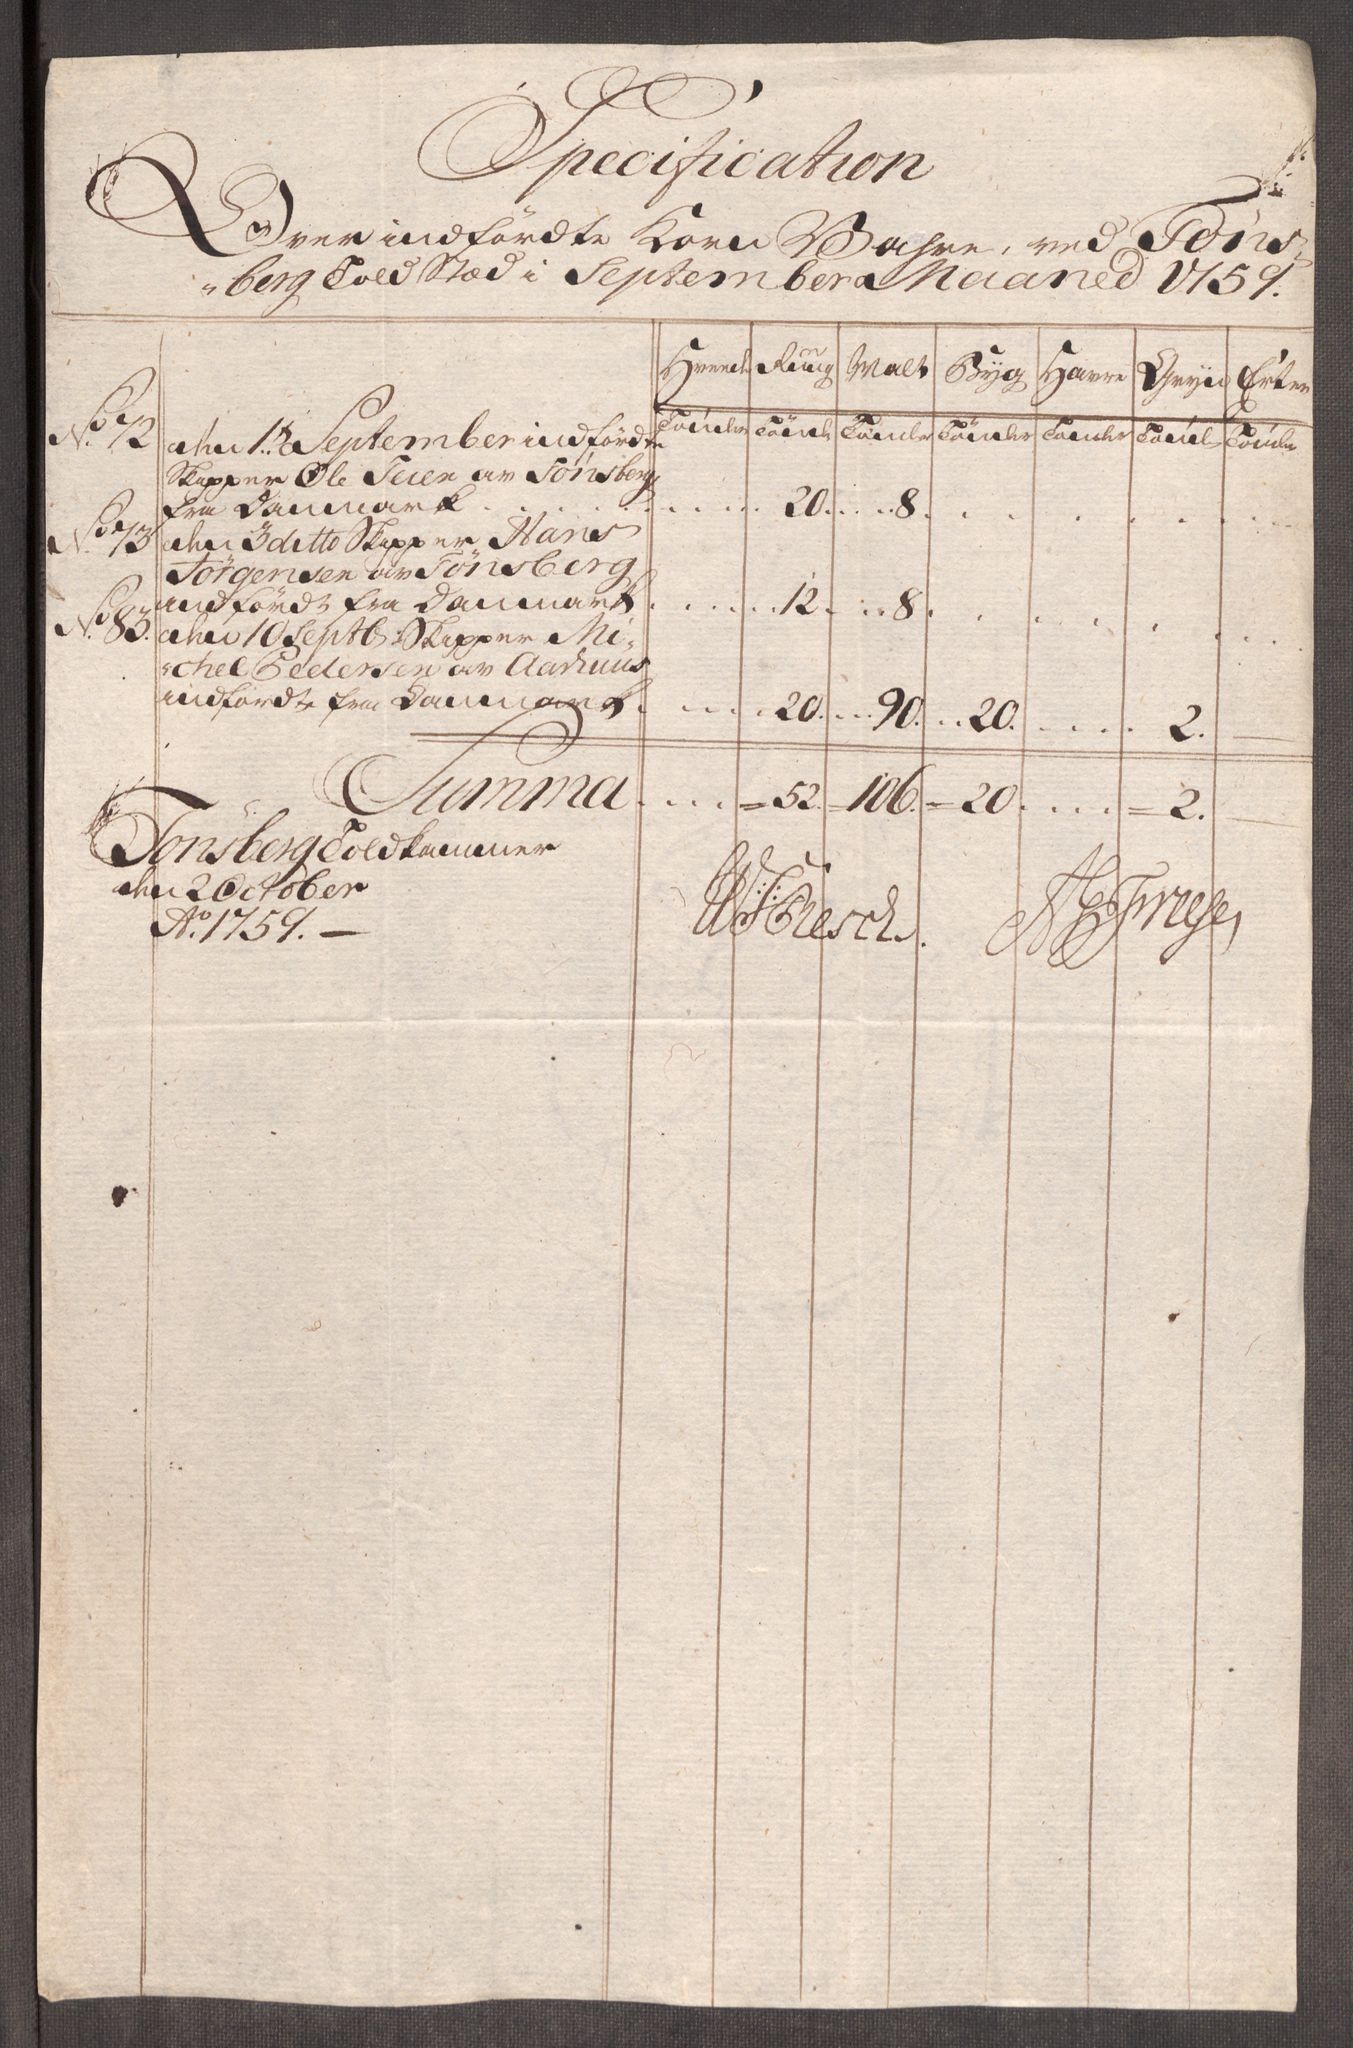 Specification
Over indførdte Korn Vahre, ved Tøns-
berg Told Stæd i September Maaned 1759.
Hvede Rug Malt Byg Havre Gryn Erter
No. 72 den 1te September indførdte Tønder Tønde Tønder Tønder Tønder Tønde Tønde
Skipper Ole Seien av Tønsberg
fra Danmark . . . . . 20. . . 8. . . . .
No. 73 den 3 ditto Skipper Hans
Jørgensen av Tønsberg
indførdt fra Danmark . . . . . 12. . . 8. . . . .
No. 83. den 10 Septb Skipper Mi-
chel Pedersen av Aarhuus
indførdt fra Danmark . . . . . 20. . . 90. . . 20. . . . . 2. —
Summa . . . . = 52. – 106. – 20. . . . = 2. —
Tønsberg Toldkammer
den 2 October
Ao. 1759. —